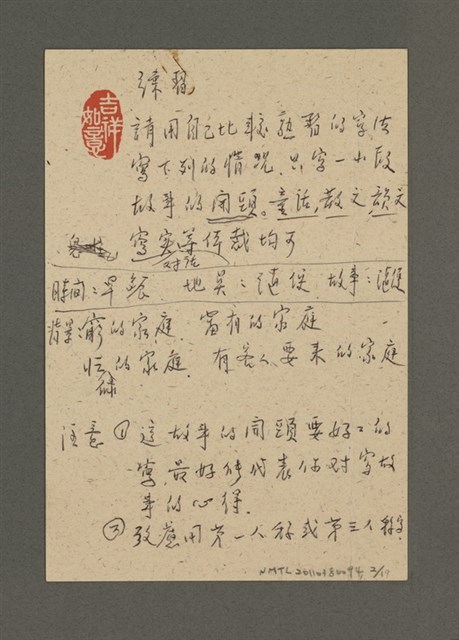 練習
吉祥如意
請用自己比較熟習的字法
寫下列的情況.只字一小段
故事的開頭。童話,散文,韻文
寫實等体裁均可
對话
時間:早餐 地㸃:隨便 故事:隨便
背景:窮的家庭 富有的家庭
忙碌的家庭. 有客人要来的家庭
注意 ① 這故事的開頭要好:的
寫.最好能代表你對寫故
事的心得.
② 效應用第一人称或第三人称寫.
NMTL 2011038 0094 2/11